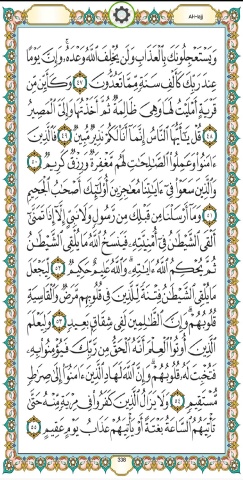 Al-Hajj
وَيَسْتَعْجِلُونَكَ بِٱلْعَذَابِ وَلَن يُخْلِفَ ٱللَّهُ وَعْدَهُۥ وَإِنَّ يَوْمًا
عِندَ رَبِّكَ كَأَلْفِ سَنَةٍ مِّمَّا تَعُدُّونَ ٤٧ وَكَأَيِّن مِّن
قَرْيَةٍ أَمْلَيْتُ لَهَا وَهِىَ ظَالِمَةٌ ثُمَّ أَخَذْتُهَا وَإِلَىَّ ٱلْمَصِيرُ
٤٨ قُلْ يَٰٓأَيُّهَا ٱلنَّاسُ إِنَّمَآ أَنَا۠ لَكُمْ نَذِيرٌ مُّبِينٌ ٤٩ فَٱلَّذِينَ
ءَامَنُوا۟ وَعَمِلُوا۟ ٱلصَّٰلِحَٰتِ لَهُم مَّغْفِرَةٌ وَرِزْقٌ كَرِيمٌ ٥٠
وَٱلَّذِينَ سَعَوْا۟ فِىٓ ءَايَٰتِنَا مُعَٰجِزِينَ أُو۟لَٰٓئِكَ أَصْحَٰبُ ٱلْجَحِيمِ
٥١ وَمَآ أَرْسَلْنَا مِن قَبْلِكَ مِن رَّسُولٍ وَلَا نَبِىٍّ إِلَّآ إِذَا تَمَنَّىٰٓ
أَلْقَى ٱلشَّيْطَٰنُ فِىٓ أُمْنِيَّتِهِۦ فَيَنسَخُ ٱللَّهُ مَا يُلْقِى ٱلشَّيْطَٰنُ
ثُمَّ يُحْكِمُ ٱللَّهُ ءَايَٰتِهِۦ وَٱللَّهُ عَلِيمٌ حَكِيمٌ ٥٢ لِّيَجْعَلَ
مَا يُلْقِى ٱلشَّيْطَٰنُ فِتْنَةً لِّلَّذِينَ فِى قُلُوبِهِم مَّرَضٌ وَٱلْقَاسِيَةِ
قُلُوبُهُمْ وَإِنَّ ٱلظَّٰلِمِينَ لَفِى شِقَاقٍۭ بَعِيدٍ ٥٣ وَلِيَعْلَمَ
ٱلَّذِينَ أُوتُوا۟ ٱلْعِلْمَ أَنَّهُ ٱلْحَقُّ مِن رَّبِّكَ فَيُؤْمِنُوا۟ بِهِۦ
فَتُخْبِتَ لَهُۥ قُلُوبُهُمْ وَإِنَّ ٱللَّهَ لَهَادِ ٱلَّذِينَ ءَامَنُوٓا۟ إِلَىٰ صِرَٰطٍ
مُّسْتَقِيمٍ ٥٤ وَلَا يَزَالُ ٱلَّذِينَ كَفَرُوا۟ فِى مِرْيَةٍ مِّنْهُ حَتَّىٰ
تَأْتِيَهُمُ ٱلسَّاعَةُ بَغْتَةً أَوْ يَأْتِيَهُمْ عَذَابُ يَوْمٍ عَقِيمٍ ٥٥
338